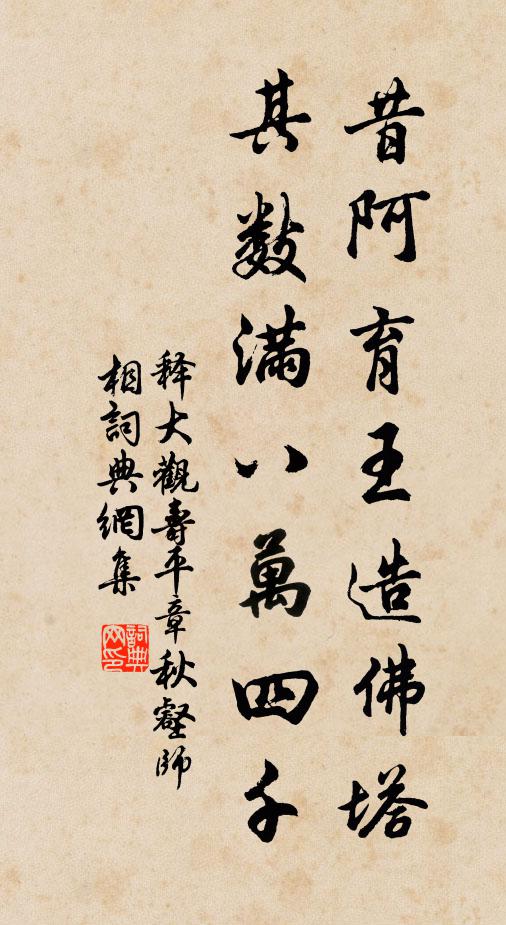 昔阿育王造佛塔
其数满八萬四千
释大觀壽平章秋壑師
相詞典網集
詞典网印